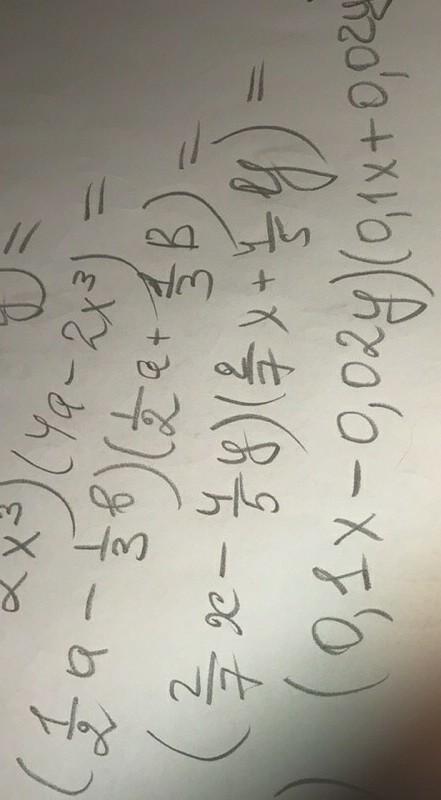 y) =
2x³)(4a - 2x³) =
(1/2 a - 1/3 b)(1/2 a + 1/3 b) =
(2/7 x - 4/5 y)(2/7 x + 4/5 y) =
(0,1x - 0,02y)(0,1x + 0,02y